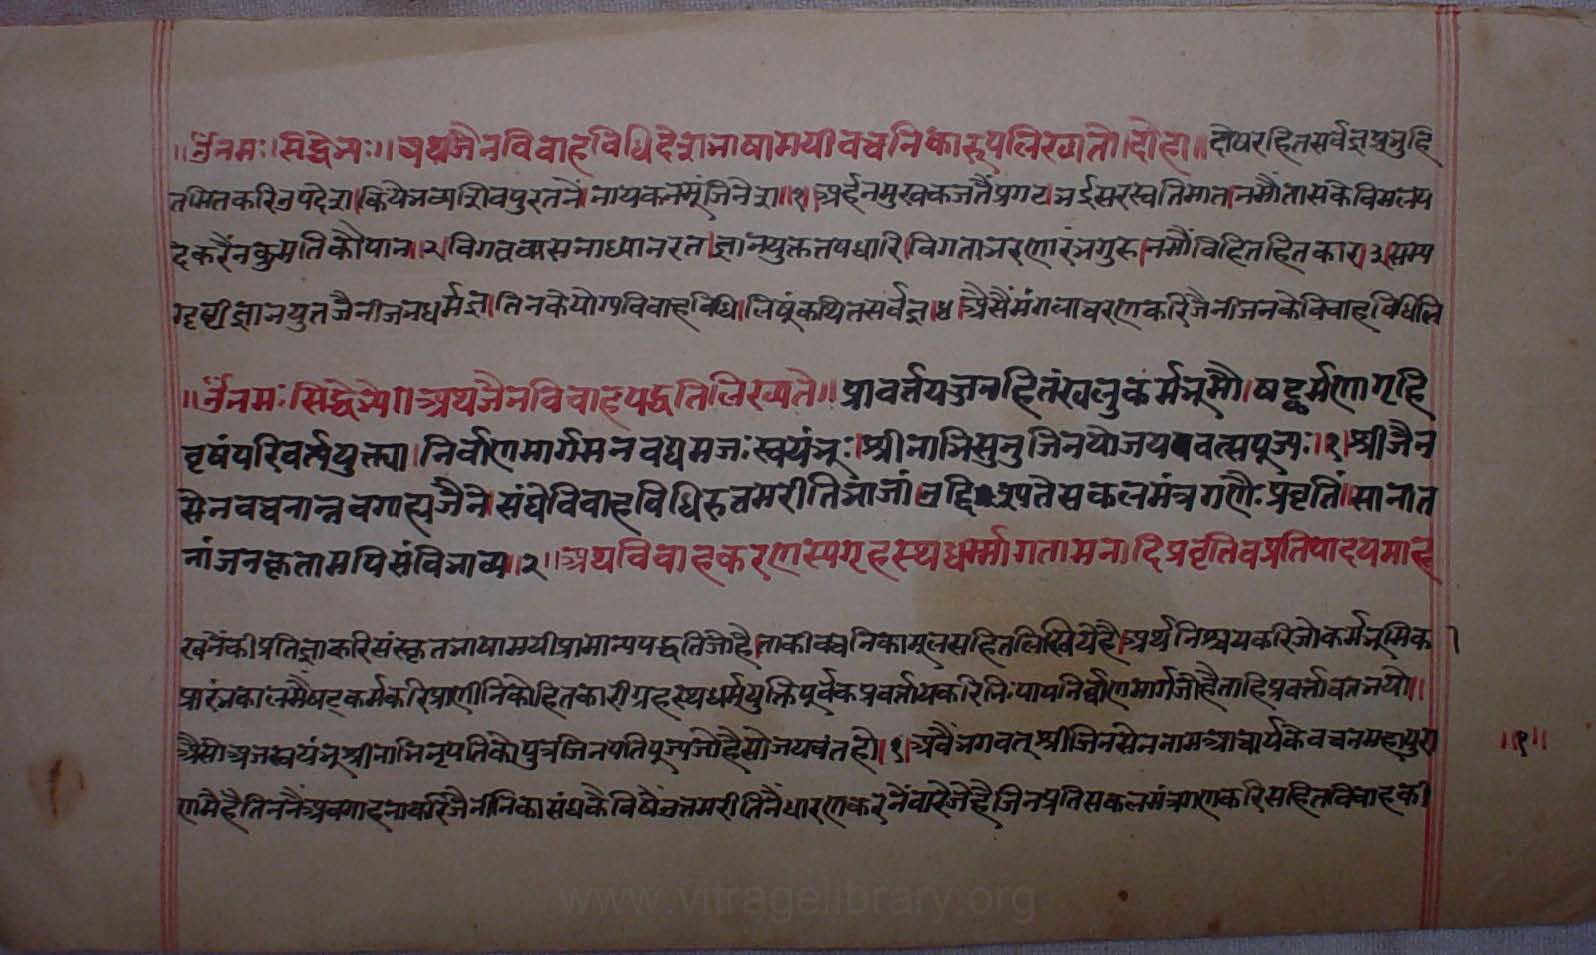 ॥ॐनमः॥सिद्धेभ्यः॥अथजैनविवाहविधिदेशभाषामयीवचनिकारूपलिख्यते॥दोहा॥दोषरहितसर्वज्ञप्रभुहि
तमितकरिउपदेश।कियेभव्यशिवपुरतनें।नायकनमूंजिनेश॥१॥अर्हनमुखकजतैंप्रगट।भईसरस्वतिमात।नमौंतासकेविमलप
दकरैंनकुमतिकौपान।२।विगतवासनाध्यानरत।ज्ञानयुक्ततपधारि।विगताभरणारंभगुरु।नमौंविहितहितकार।३।सम्य
ग्दृष्टीज्ञानयुतजैनीजनधर्मज्ञ।तिनकेयोग्यविवाहविधि।लिषूंकथितसर्वज्ञ।४।अैसैंमंगलाचरणकरिजैनीजनकेविवाहविधिलि
॥ॐनमःसिद्धेभ्यो॥अथजैनविवाहपद्धतिलिख्यते॥प्रावर्तयज्जनहितंखलुकर्मभूमौ।षट्कर्मणागृहि
वृषंपरिवर्त्ययुक्त्या।निर्वाणमार्गमनवद्यमजःस्वयंभूः।श्रीनाभिसुनुजिनयोजयवत्सपूज्यः।१।श्रीजैन
सेनवचनान्नवगाह्यजैने।संघेविवाहविधिरुत्तमरीतिभाजां।उद्दिश्यतेसकलमंत्रगणैःप्रवृतिं।सानात
नांजनकृतामपिसंविभाव्य॥२॥अथविवाहकरणस्यगृहस्थधर्मागतामनादिप्रवृतिवप्रतिपादयमाह
खनेंकीप्रतिज्ञाकरिसंस्कृतभाषामयीप्रामान्यपद्धतिजोहै।ताकीवचनिकामूलसहितलिखियेहै।अर्थनिश्चयकरिजोकर्मभूमिक
प्रारंभकालमैषट्कर्मकरिप्राणीनिकोहितकारीग्रहस्थधर्मयुक्तिपूर्वकप्रवर्त्तायकरिनिःपापनिर्वाणमार्गजोहैताहिप्रवर्त्तावतभयो॥
अैसोअजस्वयंभूश्रीनाभिनृपतिकोपुत्रजिनपतिपूज्यजोहैसोजयवंतहो।१।अवैंभगवत्श्रीजिनसेननामआचार्यकेवचनमहापुरा
णमैहैतिननैंअवगाहनाकरिजैनीनिकासंघकैविषैंउत्तमरीतिनैंधारणकरनेंवारेजेहैजिनप्रतिसकलमंत्रगणकरिसहितविवाहकी
॥१॥
www.vitragelibrary.org